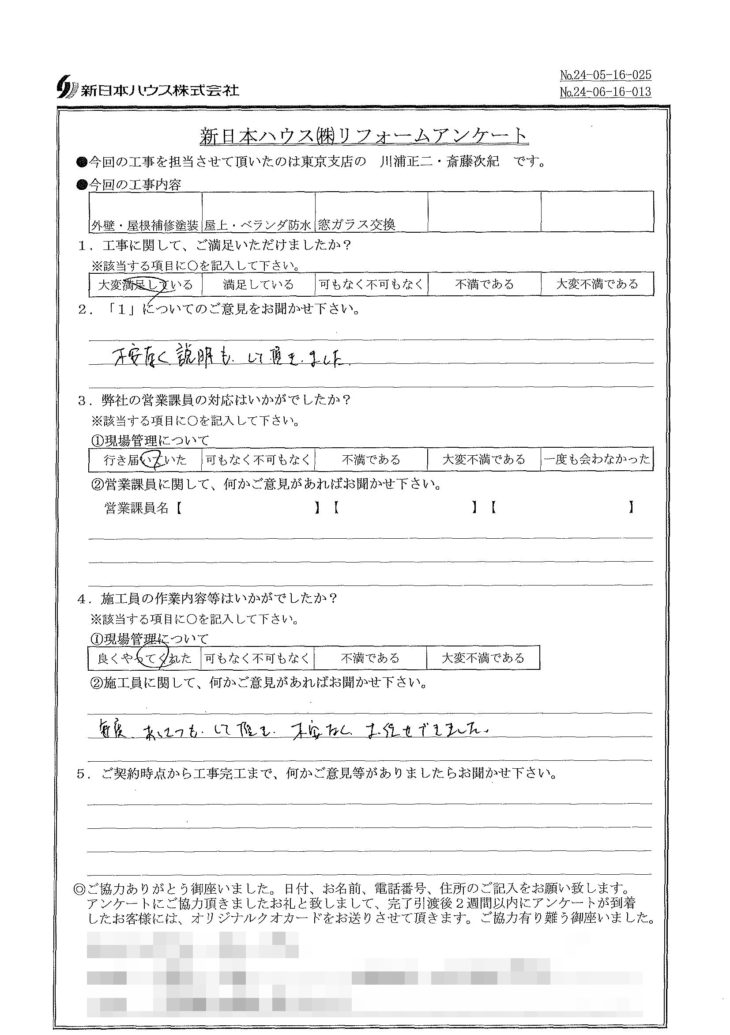 新日本ハウス株式会社
№24-05-16-025
№24-06-16-013
新日本ハウス㈱リフォームアンケート
●今回の工事を担当させて頂いたのは東京支店の 川浦正二・斎藤次紀 です。
●今回の工事内容
外壁・屋根補修塗装 屋上・ベランダ防水 窓ガラス交換
1．工事に関して、ご満足いただけましたか？
※該当する項目に○を記入して下さい。
大変満足している 満足している 可もなく不可もなく 不満である 大変不満である
2．「1」についてのご意見をお聞かせ下さい。
不安なく説明もして頂きました
3．弊社の営業課員の対応はいかがでしたか？
※該当する項目に○を記入して下さい。
①現場管理について
行き届いていた 可もなく不可もなく 不満である 大変不満である 一度も会わなかった
②営業課員に関して、何かご意見があればお聞かせ下さい。
営業課員名【 】【 】【 】
4．施工員の作業内容等はいかがでしたか？
※該当する項目に○を記入して下さい。
①現場管理について
良くやってくれた 可もなく不可もなく 不満である 大変不満である
②施工員に関して、何かご意見があればお聞かせ下さい。
毎度、あいさつもして頂き、不安なくお任せできました。
5．ご契約時点から工事完工まで、何かご意見等がありましたらお聞かせ下さい。
◎ご協力ありがとう御座いました。日付、お名前、電話番号、住所のご記入をお願い致します。
アンケートにご協力頂きましたお礼と致しまして、完了引渡後2週間以内にアンケートが到着
したお客様には、オリジナルクオカードをお送りさせて頂きます。ご協力有り難う御座いました。